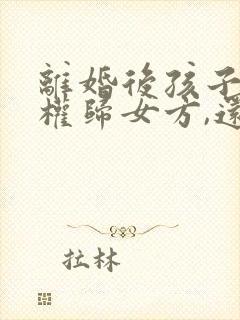 離婚後孩子
權歸女方,還
拉林